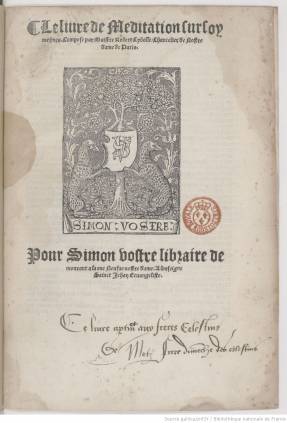 Le liure de Meditation sur soy
mesmes. Compose par Maistre Robert Cybolle Chancelier de Nostre
dame de Paris.
SIMON: VOSTRE:
Pour Simon vostre libraire de
mourant a la rue Neufue nostre dame. A lenseigne
Sainct Jehan Leuangeliste.
Ce liure aux freres Celestins
de Metz frere des celestins
Source gallica.bnf.fr / Bibliothèque nationale de France